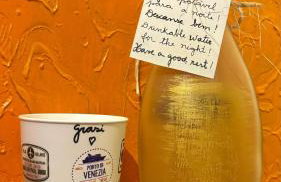 potável
para a noite!
Descanse bem!
Drinkable Water
for the night!
Have a good rest!
Grazi
PORTO DI
VENEZIA